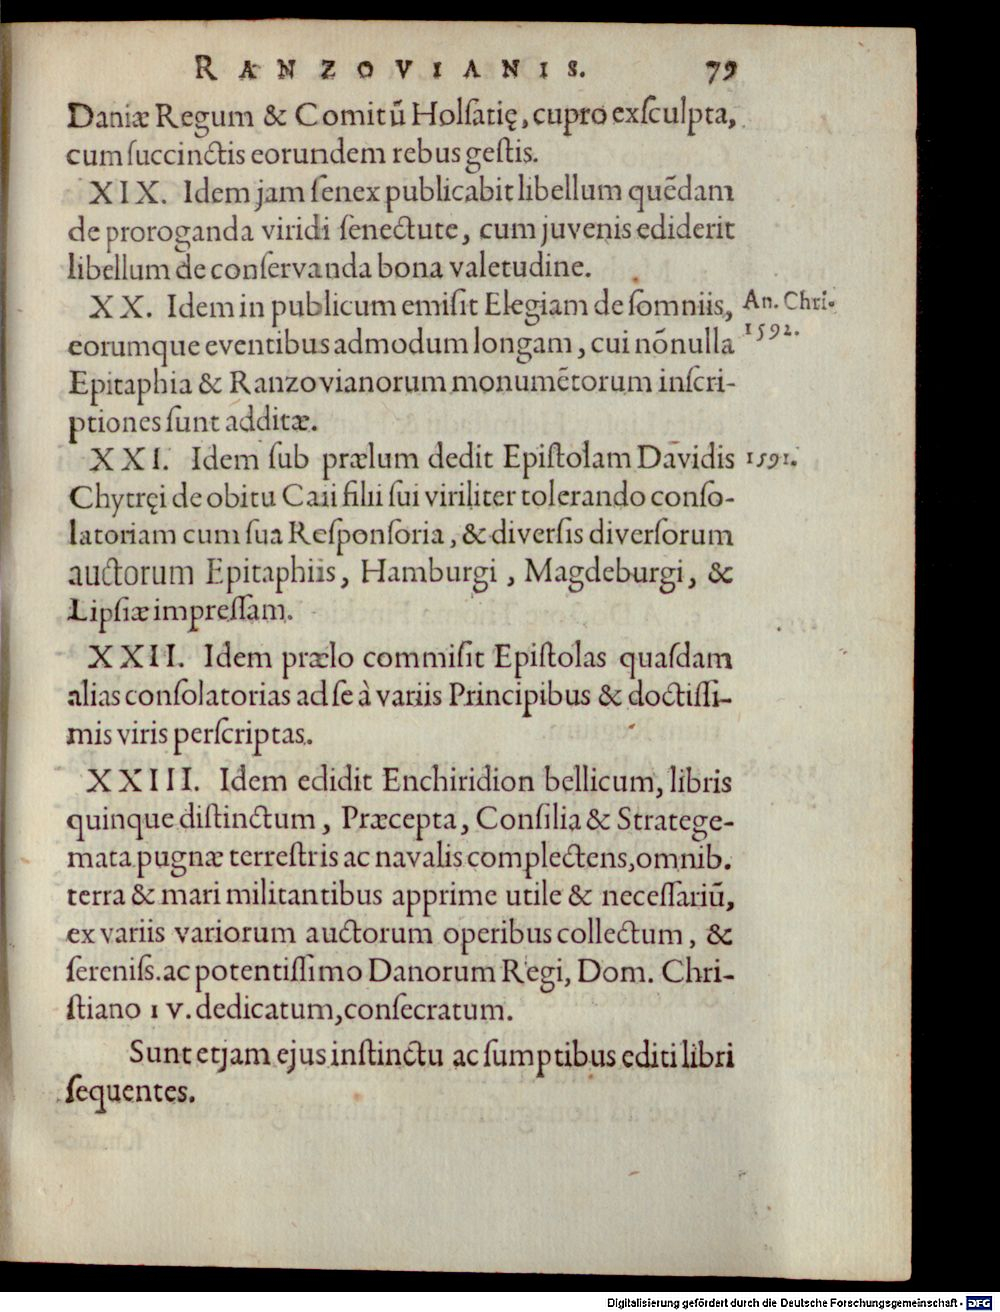 RANZOVIANIS. 79
Daniæ Regum & Comitū Holſatię, cupro exſculpta,
cum ſuccinctis eorundem rebus geſtis.
XIX. Idem jam ſenex publicabit libellum quēdam
de proroganda viridi ſenectute, cum juvenis ediderit
libellum de conſervanda bona valetudine.
XX. Idem in publicum emiſit Elegiam de ſomniis, An. Chri.
eorumque eventibus admodum longam, cui nōnulla 1592.
Epitaphia & Ranzovianorum monumētorum inſcri-
ptiones ſunt additæ.
XXI. Idem ſub prælum dedit Epiſtolam Davidis 1591.
Chytręi de obitu Caii filii ſui viriliter tolerando conſo-
latoriam cum ſua Reſponſoria, & diverſis diverſorum
auctorum Epitaphiis, Hamburgi, Magdeburgi, &
Lipſiæ impreſſam.
XXII. Idem prælo commiſit Epiſtolas quaſdam
alias conſolatorias ad ſe à variis Principibus & doctiſſi-
mis viris perſcriptas.
XXIII. Idem edidit Enchiridion bellicum, libris
quinque diſtinctum, Præcepta, Conſilia & Stratege-
mata pugnæ terreſtris ac navalis complectens, omnib.
terra & mari militantibus apprime utile & neceſſariū,
ex variis variorum auctorum operibus collectum, &
ſereniſs. ac potentiſſimo Danorum Regi, Dom. Chri-
ſtiano IV. dedicatum, conſecratum.
Sunt etjam ejus inſtinctu ac ſumptibus editi libri
ſequentes.
Digitalisierung gefördert durch die Deutsche Forschungsgemeinschaft - DFG